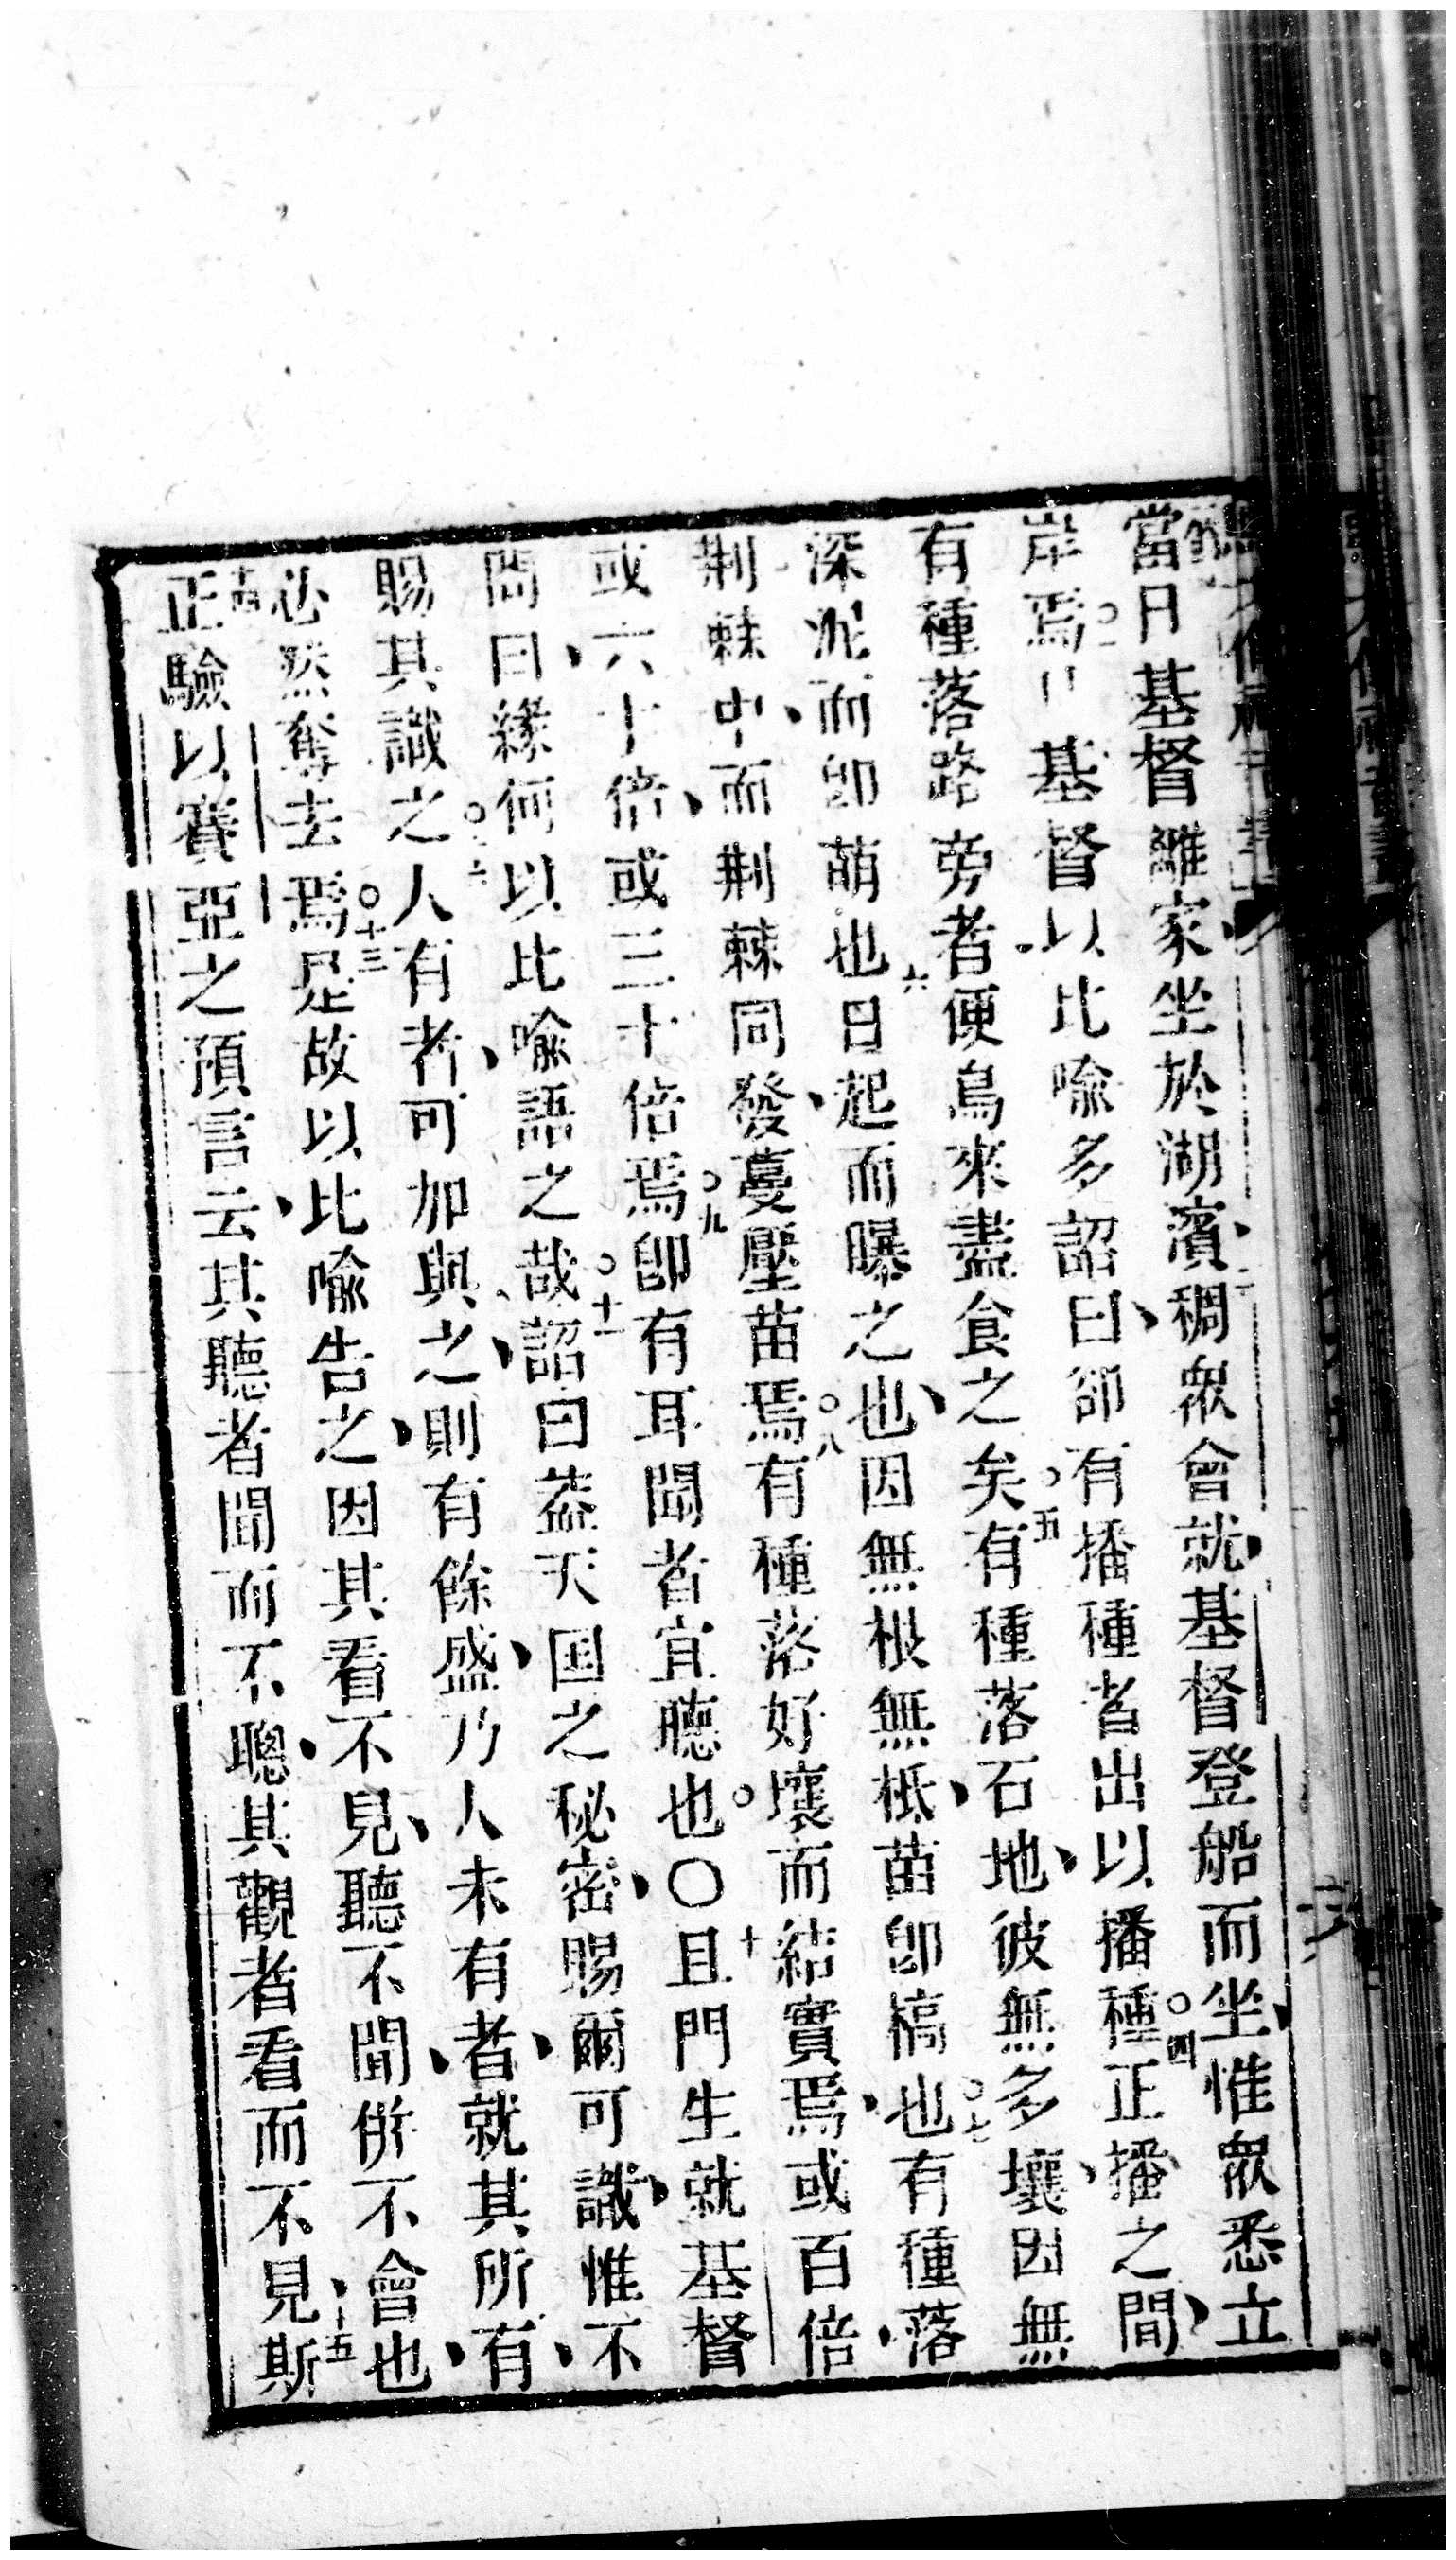 當日基督離家坐於湖濱、二稠衆會就、基督登船而坐、惟衆悉立
岸焉○三基督以比喻多詔曰、卻有播種者出以播種○四正播之間、
有種落路旁者、便鳥來盡食之矣○五有種落石地、彼無多壤、因無
深泥而卽萌也六日起而曝之也、因無根無柢、苗卽槁也○七有種落
荆棘中、而荆棘同發、蔓壓苗焉○八有種落好壤而結實焉、或百倍、
或六十倍、或三十倍焉○九卽有耳聞者宜聽也○〇十且門生就基督
問曰、緣何以比喻語之哉○十一詔曰葢天国之秘密、賜爾可識、惟不
賜其識之○十二人有者、可加與之、則有餘盛、乃人未有者、就其所有、
必然奪去焉○十三是故以比喻告之、因其看不見、聽不聞、併不會也、
十四正驗以賽亞之預言云、其聽者聞而不聰、其觀者看而不見、十五斯